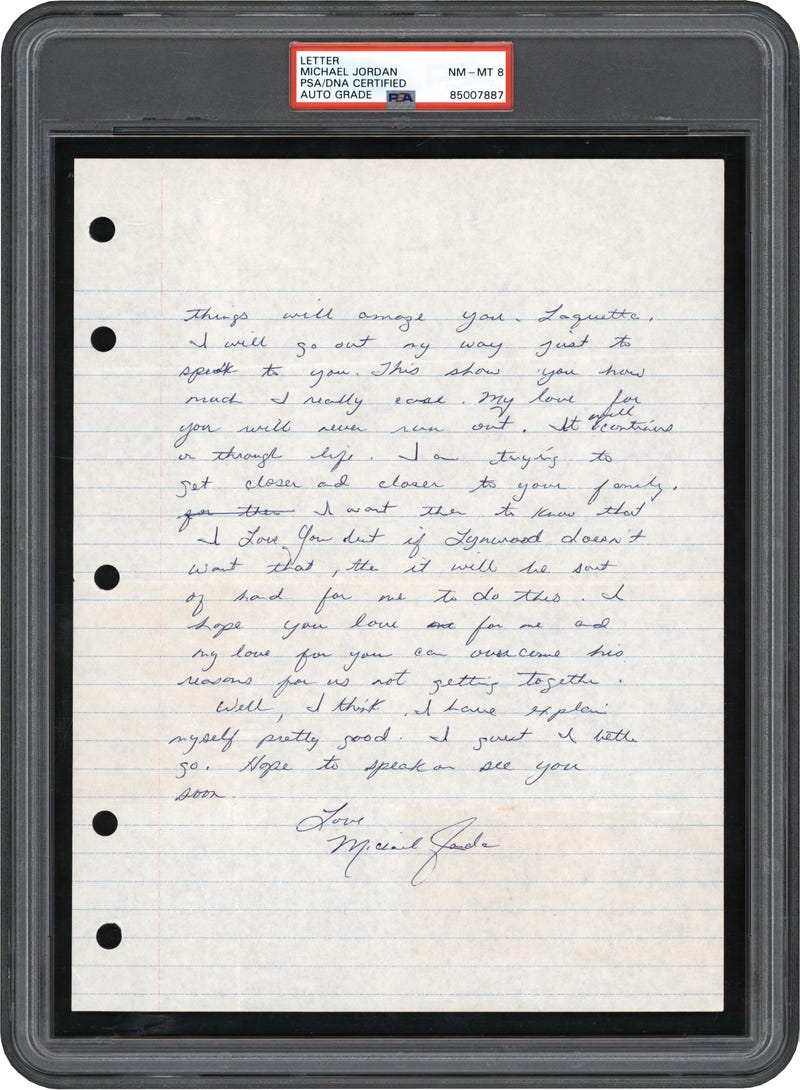 LETTER
MICHAEL JORDAN NM – MT 8
PSA/DNA CERTIFIED
AUTO GRADE PSA 85007887
things will amaze you. Laquette,
I will go out my way just to
speak to you. This show you how
much I really care. My love for
you will never run out. It will continue
on through life. I am trying to
get closer and closer to your family,
for them I want them to know that
I Love You but if Lynwood doesn't
want that, the it will be sort
of hard for me to do this. I
hope you love for me and
my love for you can overcome his
reasons for us not getting together.
Well, I think, I have explain
myself pretty good. I guest I better
go. Hope to speak or see you
soon.
Love
Michael Jordan